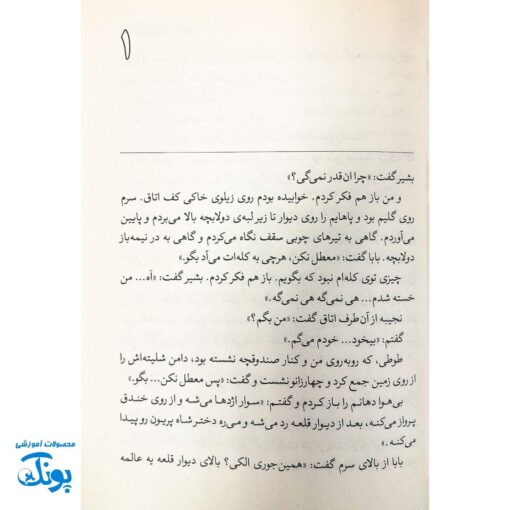 ۱
بشیر گفت: «چرا ان‌قدر نمی‌گی؟»
و من باز هم فکر کردم. خوابیده بودم روی زیلوی خاکی کف اتاق. سرم
روی گلیم بود و پاهایم را روی دیوار تا زیر لبه‌ی دولابچه بالا می‌بردم و پایین
می‌آوردم. گاهی به تیرهای چوبی سقف نگاه می‌کردم و گاهی به در نیمه‌باز
دولابچه. بابا گفت: «معطل نکن، هرچی به کله‌ات می‌آد بگو.»
چیزی توی کله‌ام نبود که بگویم. باز هم فکر کردم. بشیر گفت: «اَه... من
خسته شدم... هی نمی‌گه هی نمی‌گه.»
نجیبه از آن‌طرف اتاق گفت: «من بگم؟»
گفتم: «بیخود... خودم می‌گم.»
طوطی، که روبه‌روی من و کنار صندوقچه نشسته بود، دامن شلیته‌اش را
از روی زمین جمع کرد و چهارزانو نشست و گفت: «پس معطل نکن... بگو.»
بی‌هوا دهانم را باز کردم و گفتم: «سوار اژدها می‌شه و از روی خندق
پرواز می‌کنه، بعد از دیوار قلعه رد می‌شه و می‌ره دختر شاه پریون رو پیدا
می‌کنه.»
بابا از بالای سرم گفت: «همین‌جوری الکی؟ بالای دیوار قلعه یه عالمه
محصولات آموزشی
پونک